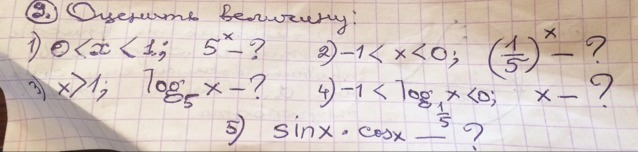 2. Оценить величину:
1) 0 < x < 1; 5^x - ? 2) -1 < x < 0; (1/5)^x - ?
3) x > 1; log_5 x - ? 4) -1 < log_{1/5} x < 0; x - ?
5) sinx · cosx - ?